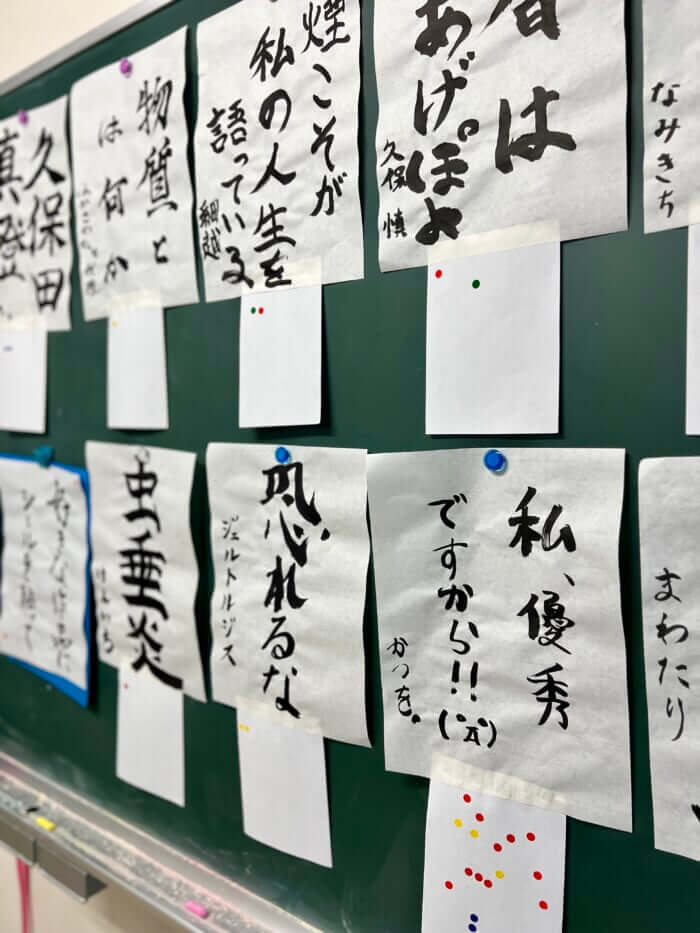 久保田
物質と
は何か
煙こそが
私の人生を
語っている
細越
は
あげぽよ
久保 慎
なみきち
好きな作品に
シールを貼って
虫垂炎
恐れるな
ジェルトルジス
私、優秀
ですから!!(°Д°)
かつを。
まわたり